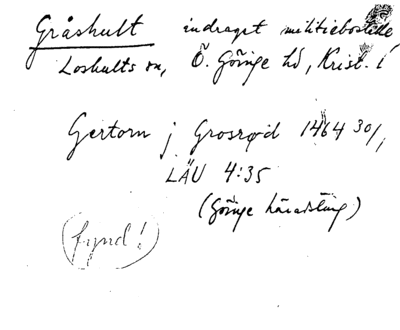 Gråshult indraget militieboställe
Loshults sn, Ö. Göinge hd, Krist. l
Gertorn j Grosrød 1464 30/1
LÄU 4:35
(Göinge häradsting)
(fynd!)